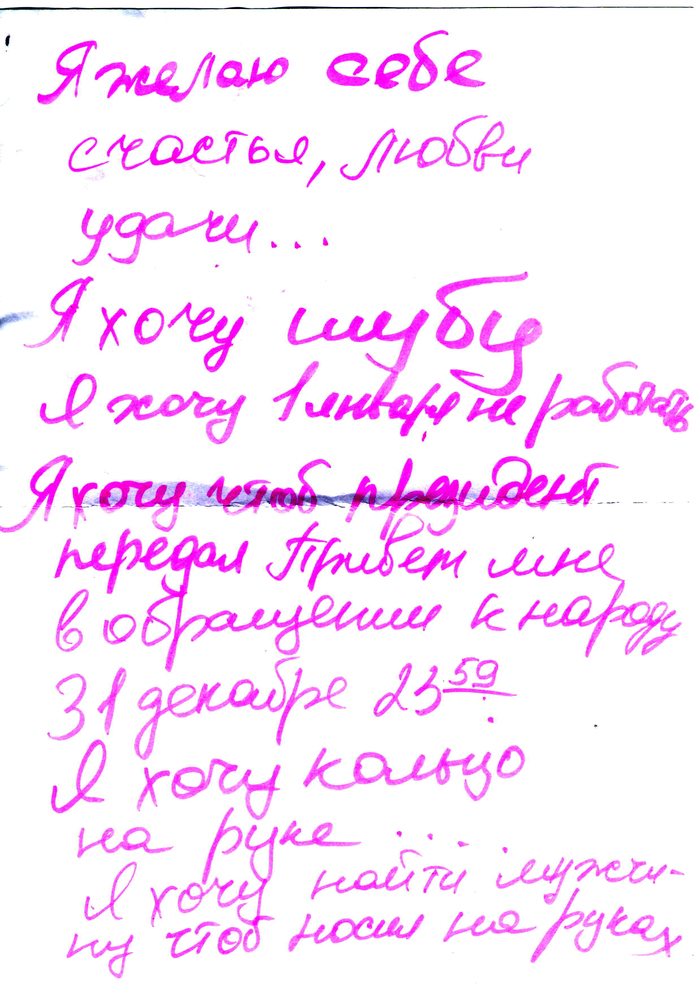 Я желаю себе
счастья, любви
удачи...
Я хочу шубу
Я хочу 1 января не работать
Я хочу чтоб президент
передал Привет мне
в обращении к народу
31 декабре 23 59
Я хочу кольцо
на руке ....
Я хочу найти мужчи-
ну чтоб носил на руках